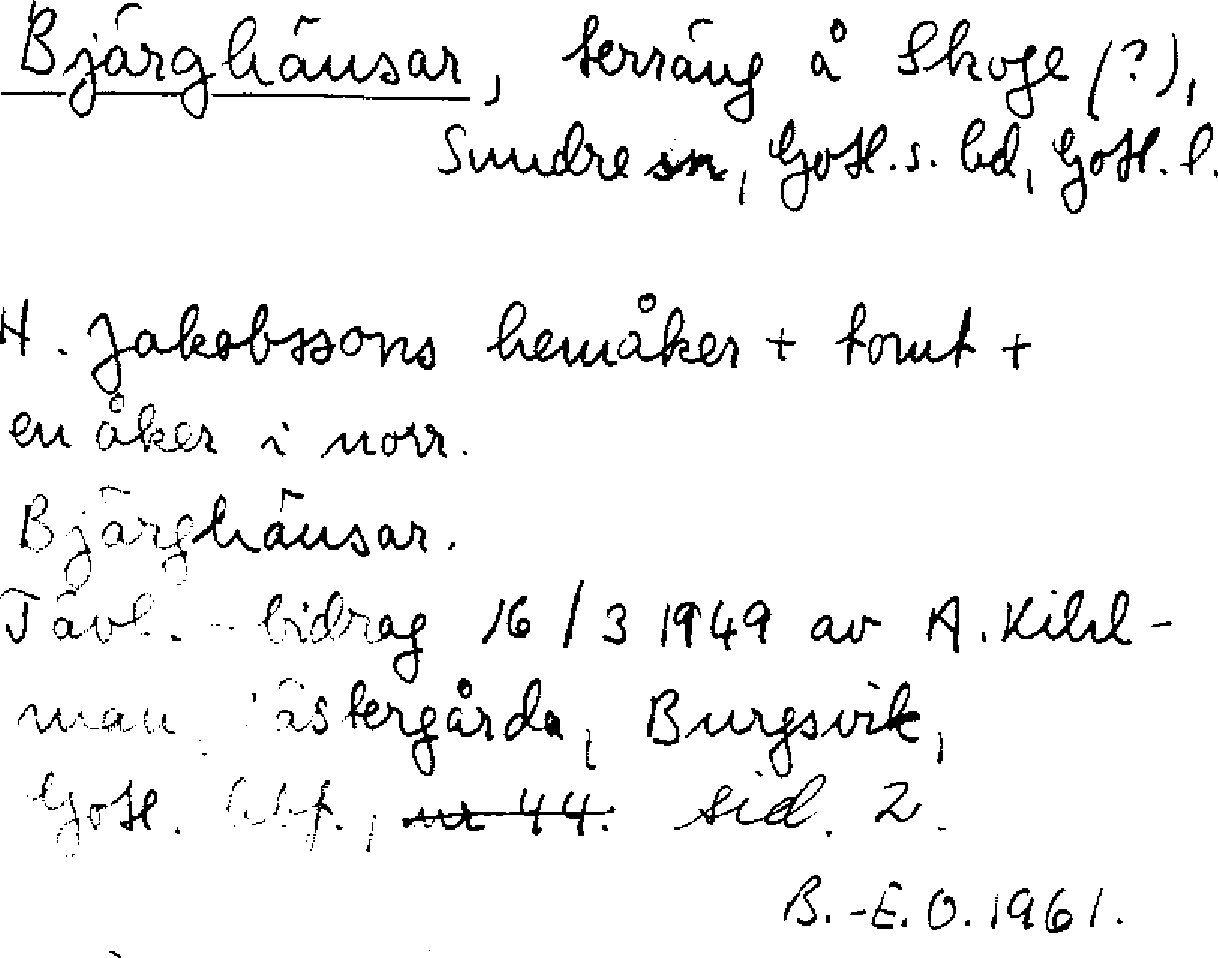 Bjärghäusar, terräng å Skoge (?),
Sundre sn, Gotl. s. hd, Gotl. l.
H. Jakobssons hemåker + tomt +
en åker i norr.
Bjärghäusar.
Tävl.-bidrag 16/3 1949 av A. Kihl-
man, ästergårda, Burgsvik,
Gotl. nr 44. sid. 2.
B.-E. O. 1961.